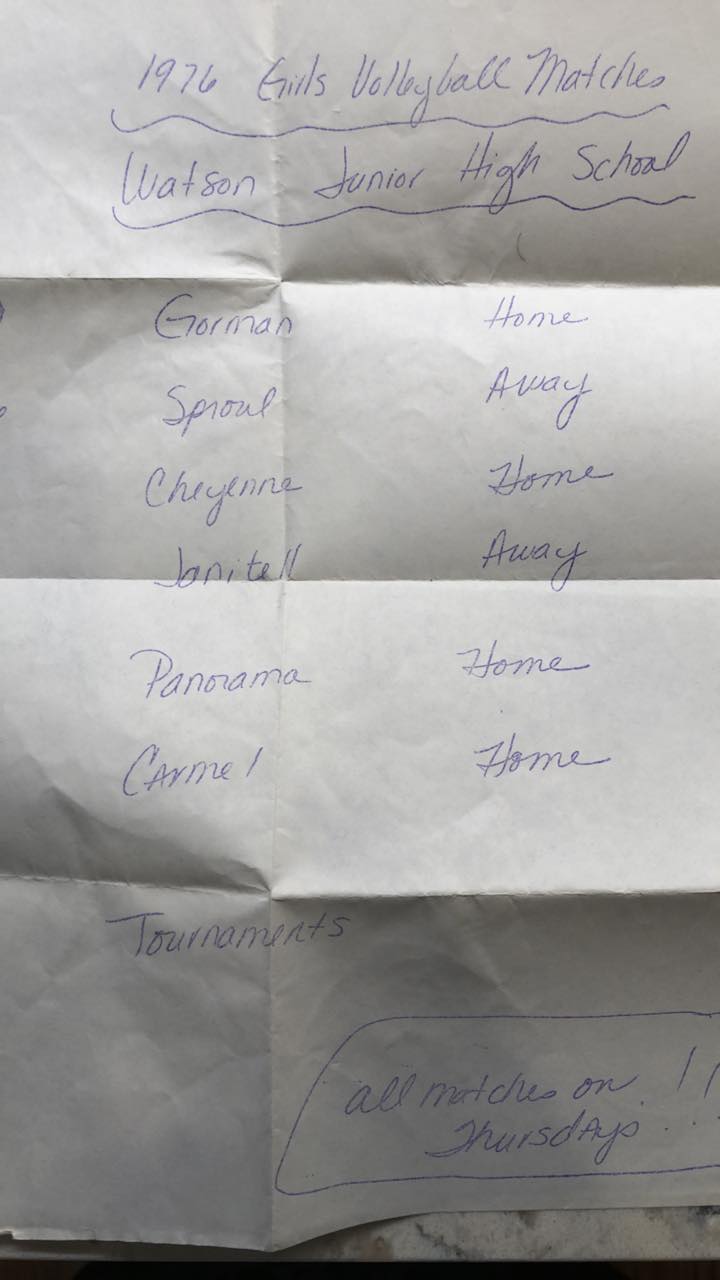 1976 Girls Volleyball Matches
Watson Junior High School
Gorman Home
Sproul Away
Cheyenne Home
Janitell Away
Panorama Home
Carmel Home
Tournaments
all matches on !!
Thursdays